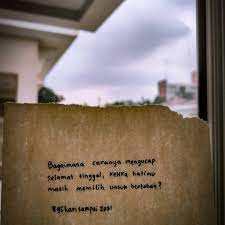 Bagaimana caranya mengucap
selamat tinggal, ketika hatimu
masih memilih untuk bertahan?
#95harisampai 2021